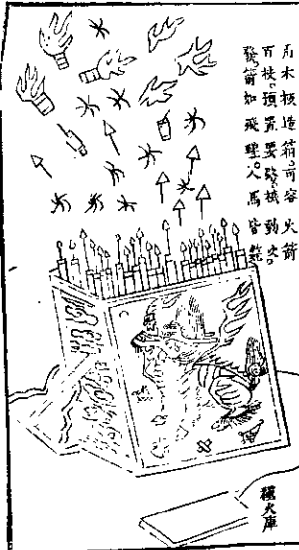 用木板造箱。可容火箭
百枝。預置要路。機動火。
發。箭如飛蝗。人馬皆
火庫